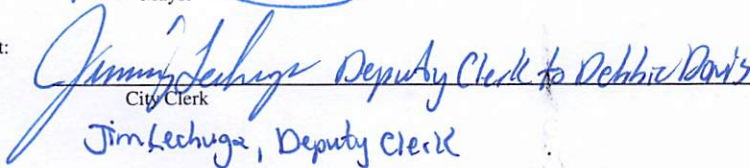 t:
Jimmy Lechuga Deputy Clerk to Debbie Davis
City Clerk
Jim Lechuga, Deputy Clerk